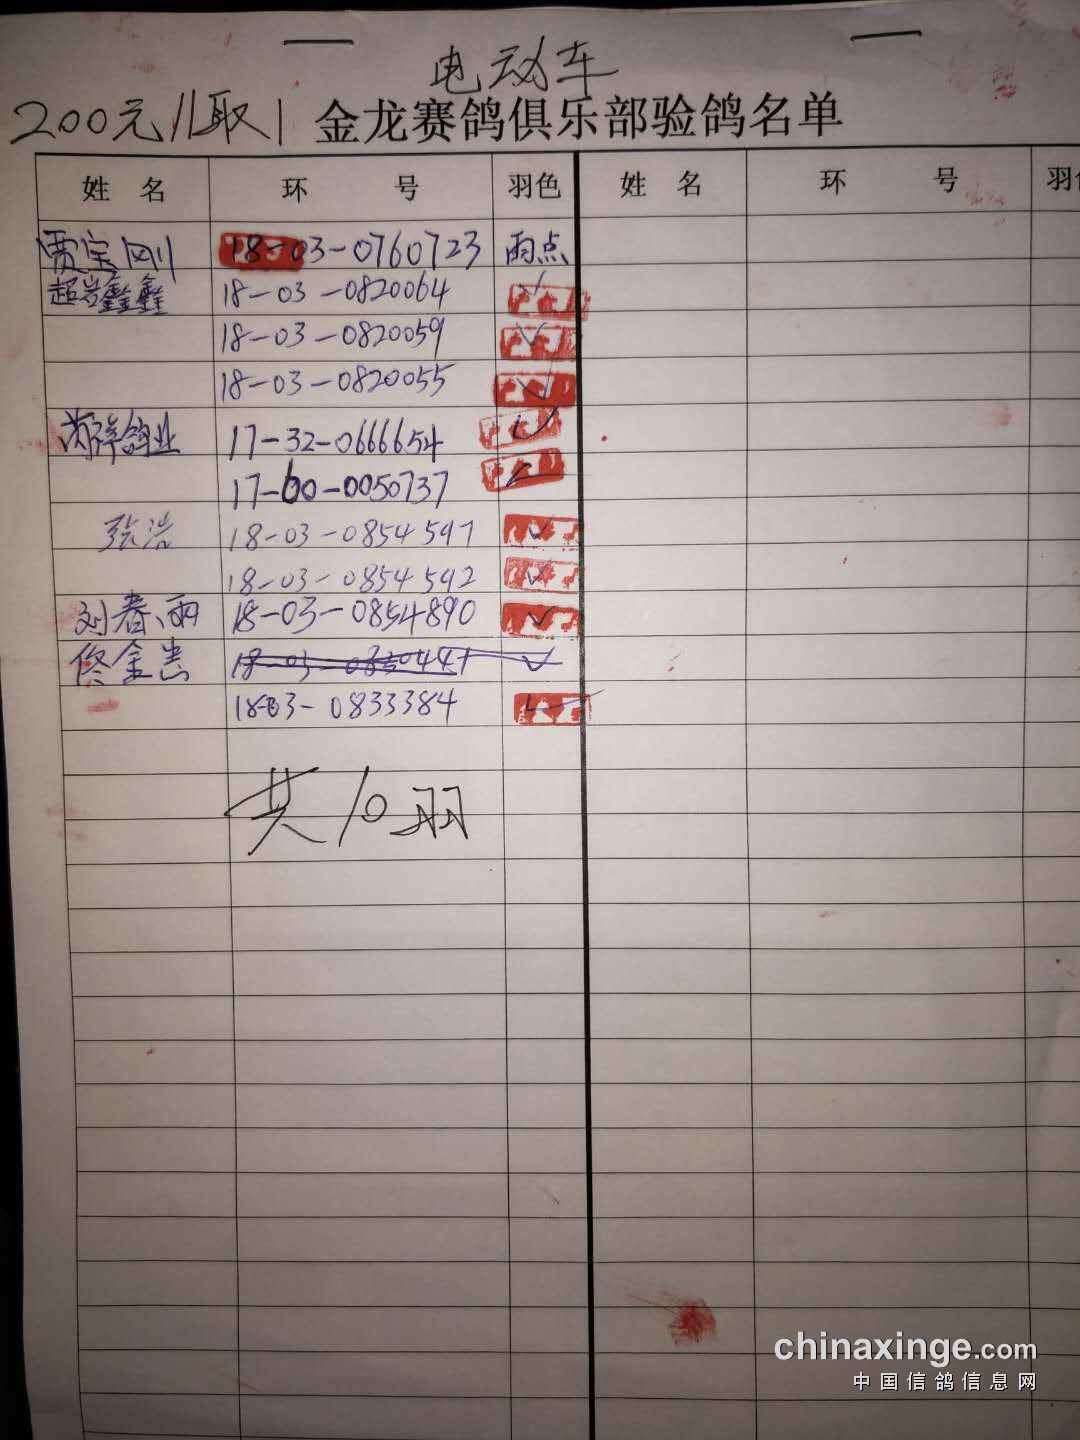 电动车
200元 取1 金龙赛鸽俱乐部验鸽名单
姓 名 环 号 羽色 姓 名 环 号 羽色
贾宝刚 18-03-0760723 雨点
超岩鑫鑫 18-03-0820064 ✓
18-03-0820059 ✓
18-03-0820055 ✓
海洋鸽业 17-32-0666654 ✓
17-60-0050737 ✓
张浩 18-03-0854597 ✓
18-03-0854592 ✓
刘春雨 18-03-0854890 ✓
佟金 ✓
18-03-0833384 ✓
共10羽
chinaxinge.com
中国信鸽信息网